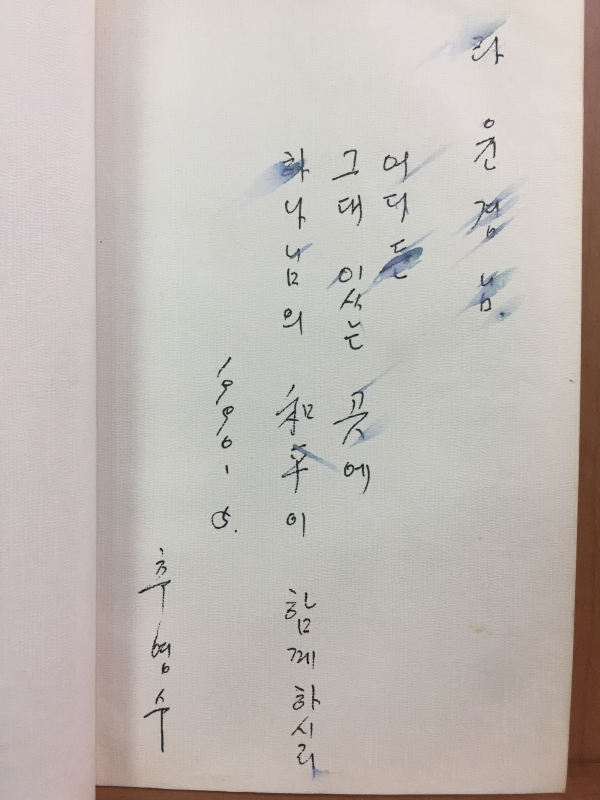 라 윤경 님.
어디든
그대 있는 곳에
하나님의 和平이 함께하시리
1990. 5.
추영수